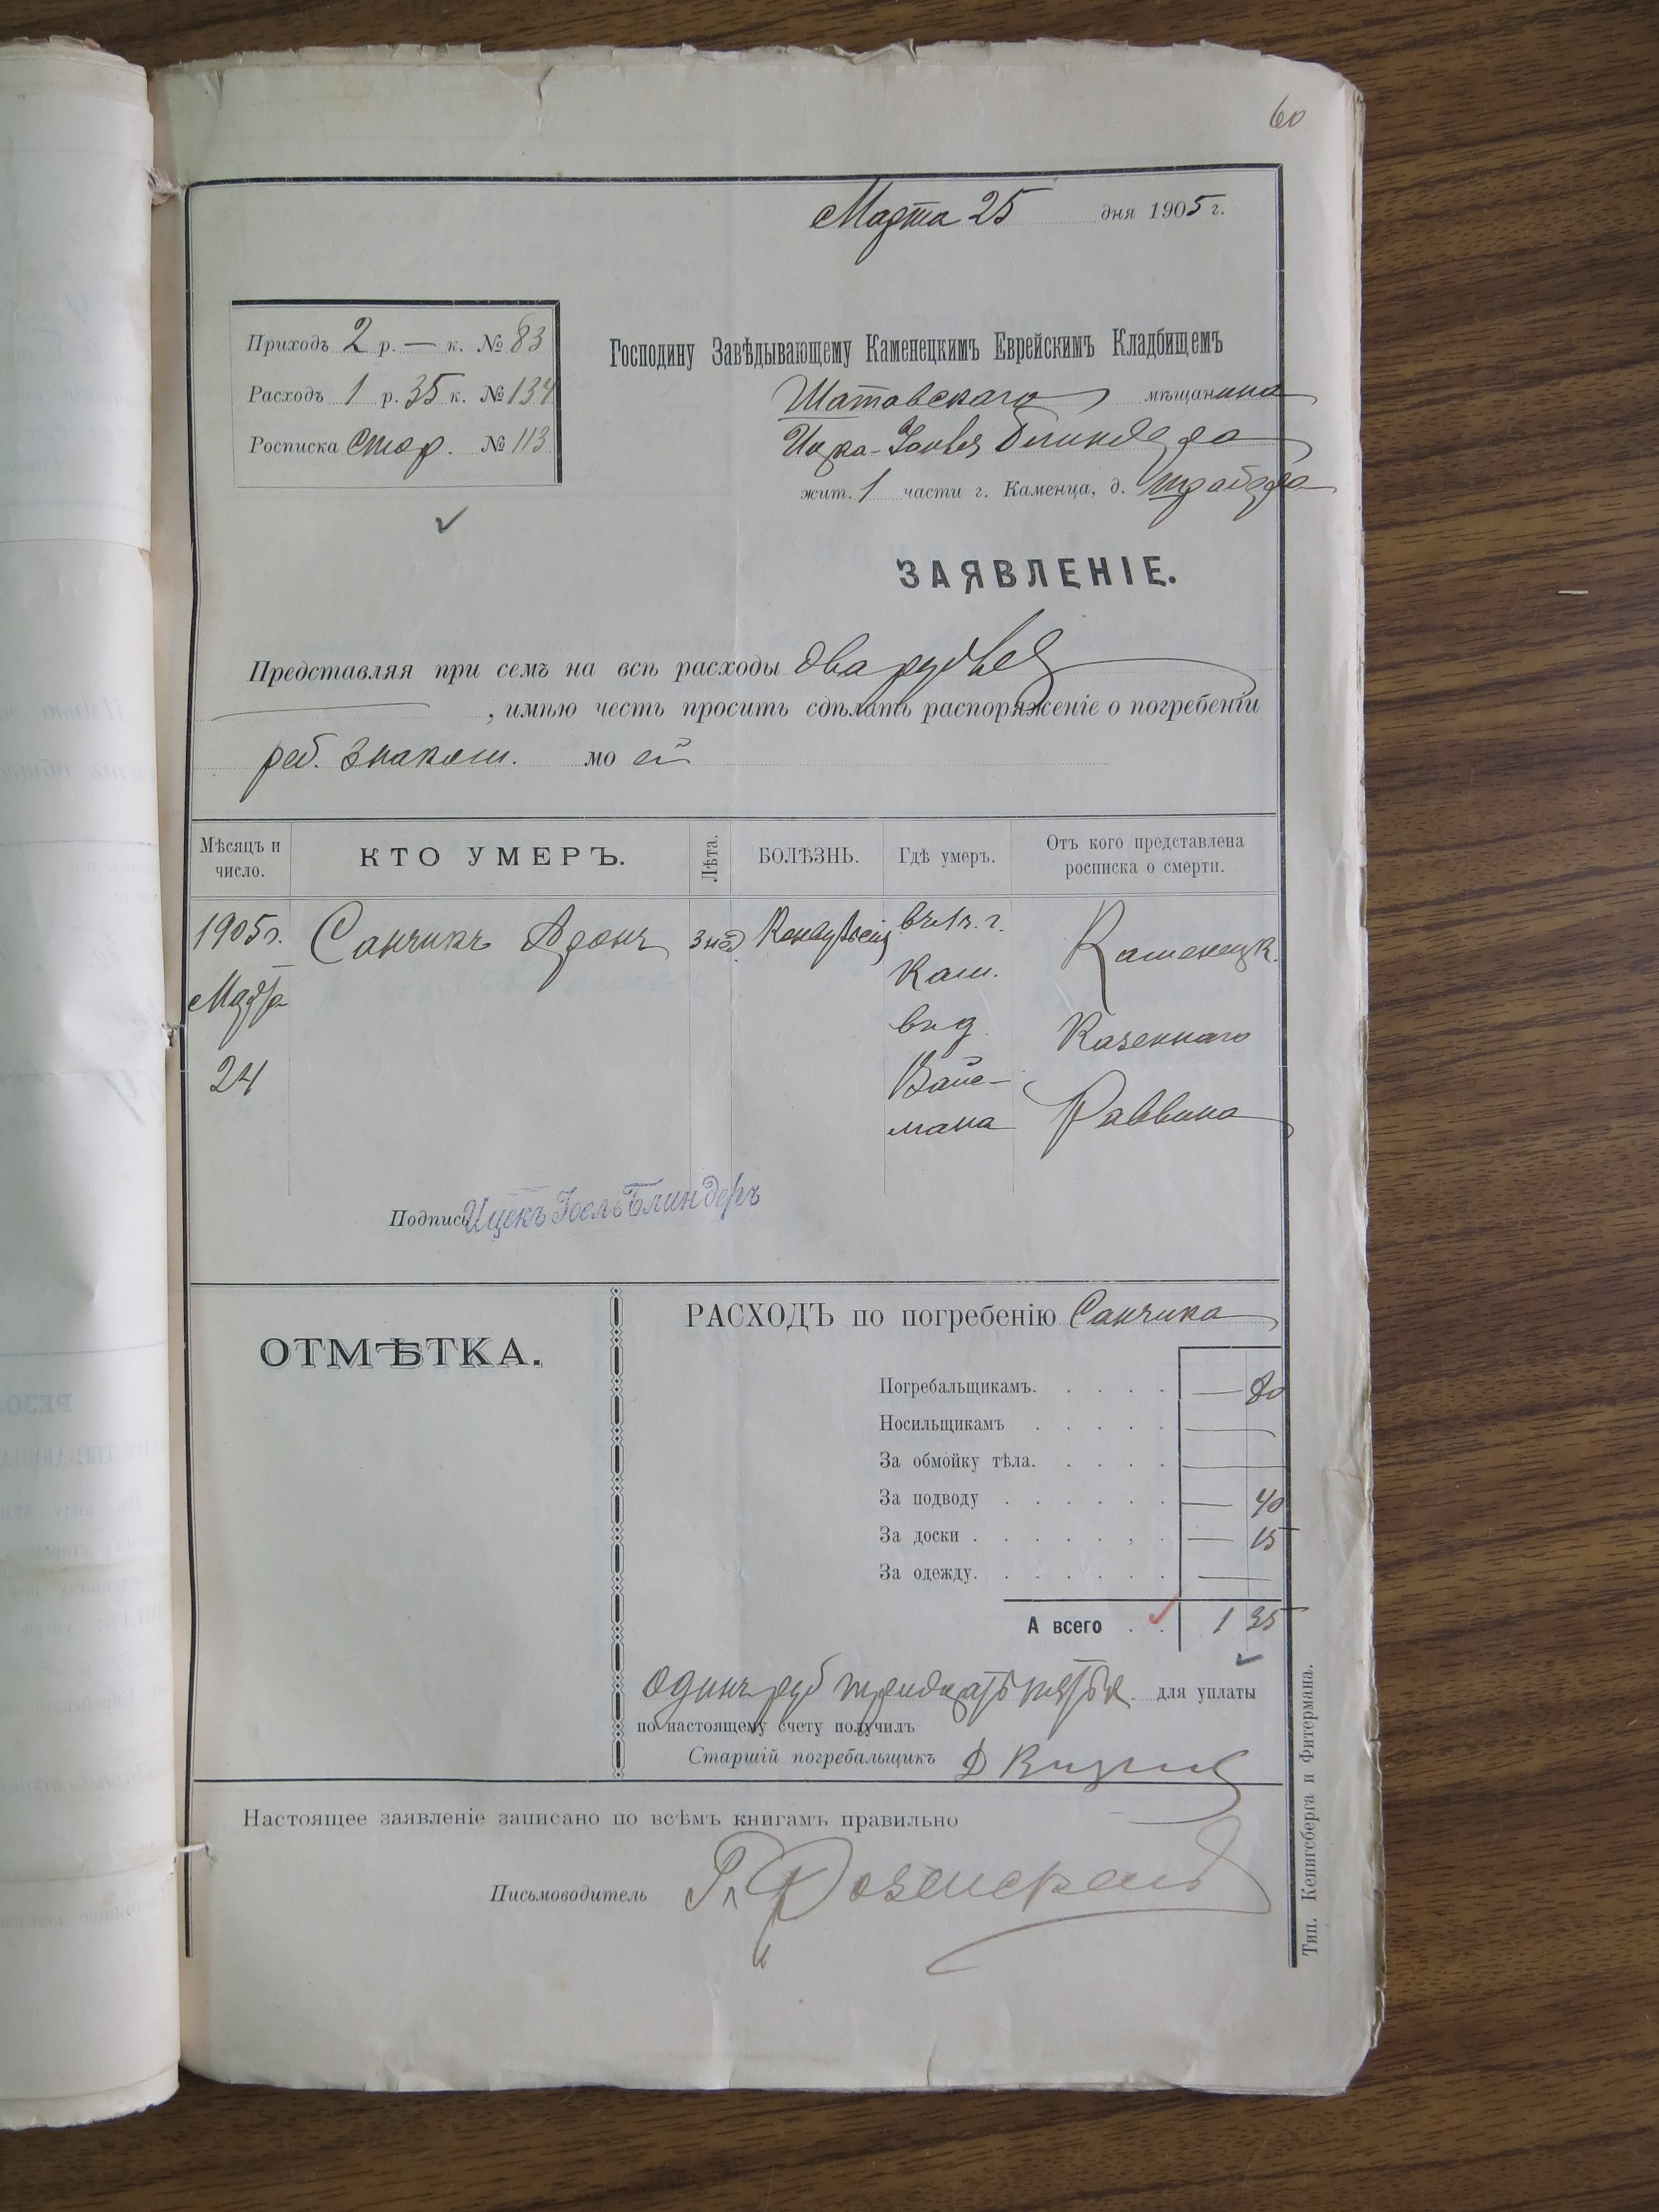 60
Марта 25 дня 1905 г.
Приходъ 2 р. — к. № 83
Расходъ 1 р. 35 к. № 134
Росписка стор. № 113
Господину Завѣдывающему Каменецкимъ Еврейскимъ Кладбищемъ
Шатовскаго мѣщанина
Ицка-Іоиля Блиндера
жит. 1 части г. Каменца, д.
ЗАЯВЛЕНІЕ.
Представляя при семъ на всѣ расходы два рубля
, имѣю честь просить сдѣлать распоряженіе о погребеніи
реб. знаком. моей
Мѣсяцъ и число.
КТО УМЕРЪ.
Лѣта.
БОЛѢЗНЬ.
Гдѣ умеръ.
Отъ кого представлена росписка о смерти.
1905 г. Санчикъ Аронъ 3 нед. Конвульсія въ 1 ч. г. Каменецк.
Марта Кам.
въ д. Казеннаго
24 Вайс-
мана Раввина
Подпись Ицекъ Іоель Блиндеръ
ОТМѢТКА.
РАСХОДЪ по погребенію Санчика
Погребальщикамъ. — 80
Носильщикамъ —
За обмойку тѣла. —
За подводу — 40
За доски — 15
За одежду. —
А всего 1 35
Одинъ руб тридцать пять к. для уплаты
по настоящему счету получилъ
Старшій погребальщикъ Д
Настоящее заявленіе записано по всѣмъ книгамъ правильно
Письмоводитель
Тип. Кенигсберга и Фитермана.